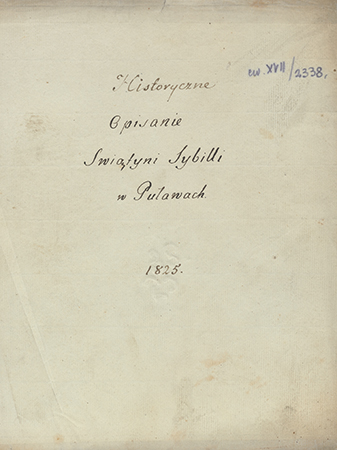 ew. XVII/2338.
Historyczne
Opisanie
Swiątyni Sybilli
w Puławach.
1825.